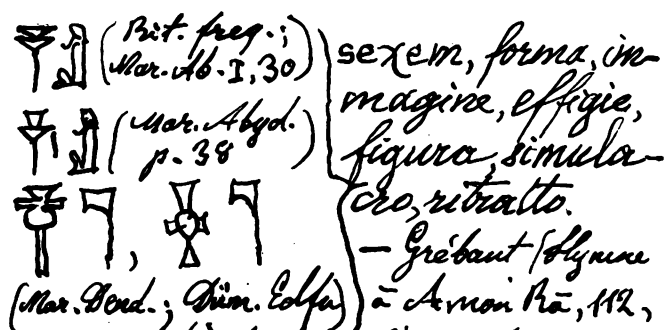 (Rit. freq.;
Mar. Ab. I, 30)
(Mar. Abyd.
p. 38)
(Mar. Dend.; Düm. Edfu)
sexem, forma, im-
magine, effigie,
figura, simula-
cro, ritratto.
— Grébaut (Hymne
à Amon Rā, 112,